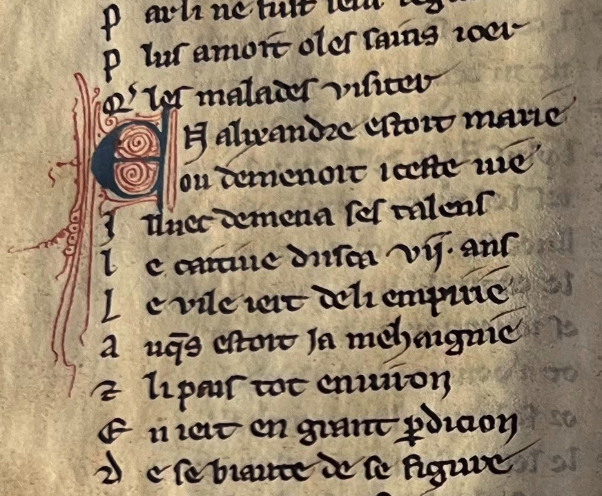 P arli ne fust
P lus amoit oles sains ioer
Q' les malades visiter
EN alixandre estoit marie
ou demenoit iceste uie
I lluec demena ses talens
l e caitiue dusca vij. ans
L e vile iert de li empirie
a uqs estoit ja mehaignie
⁊ li pais tot enuiron
E n iert en grant ꝑdicion
d e se biaute de se figure